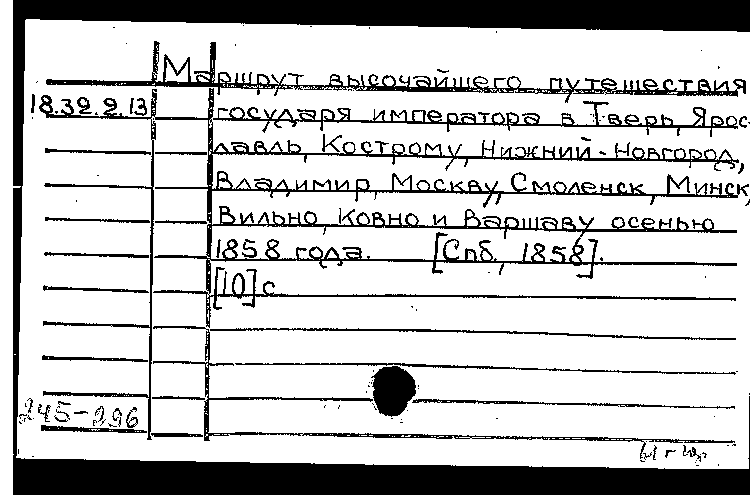 Маршрут высочайшего путешествия
18.39.9.13 государя императора в Тверь, Ярос-
лавль, Кострому, Нижний-Новгород,
Владимир, Москву, Смоленск, Минск,
Вильно, Ковно и Варшаву осенью
1858 года. [Спб, 1858].
[10] с
245-296